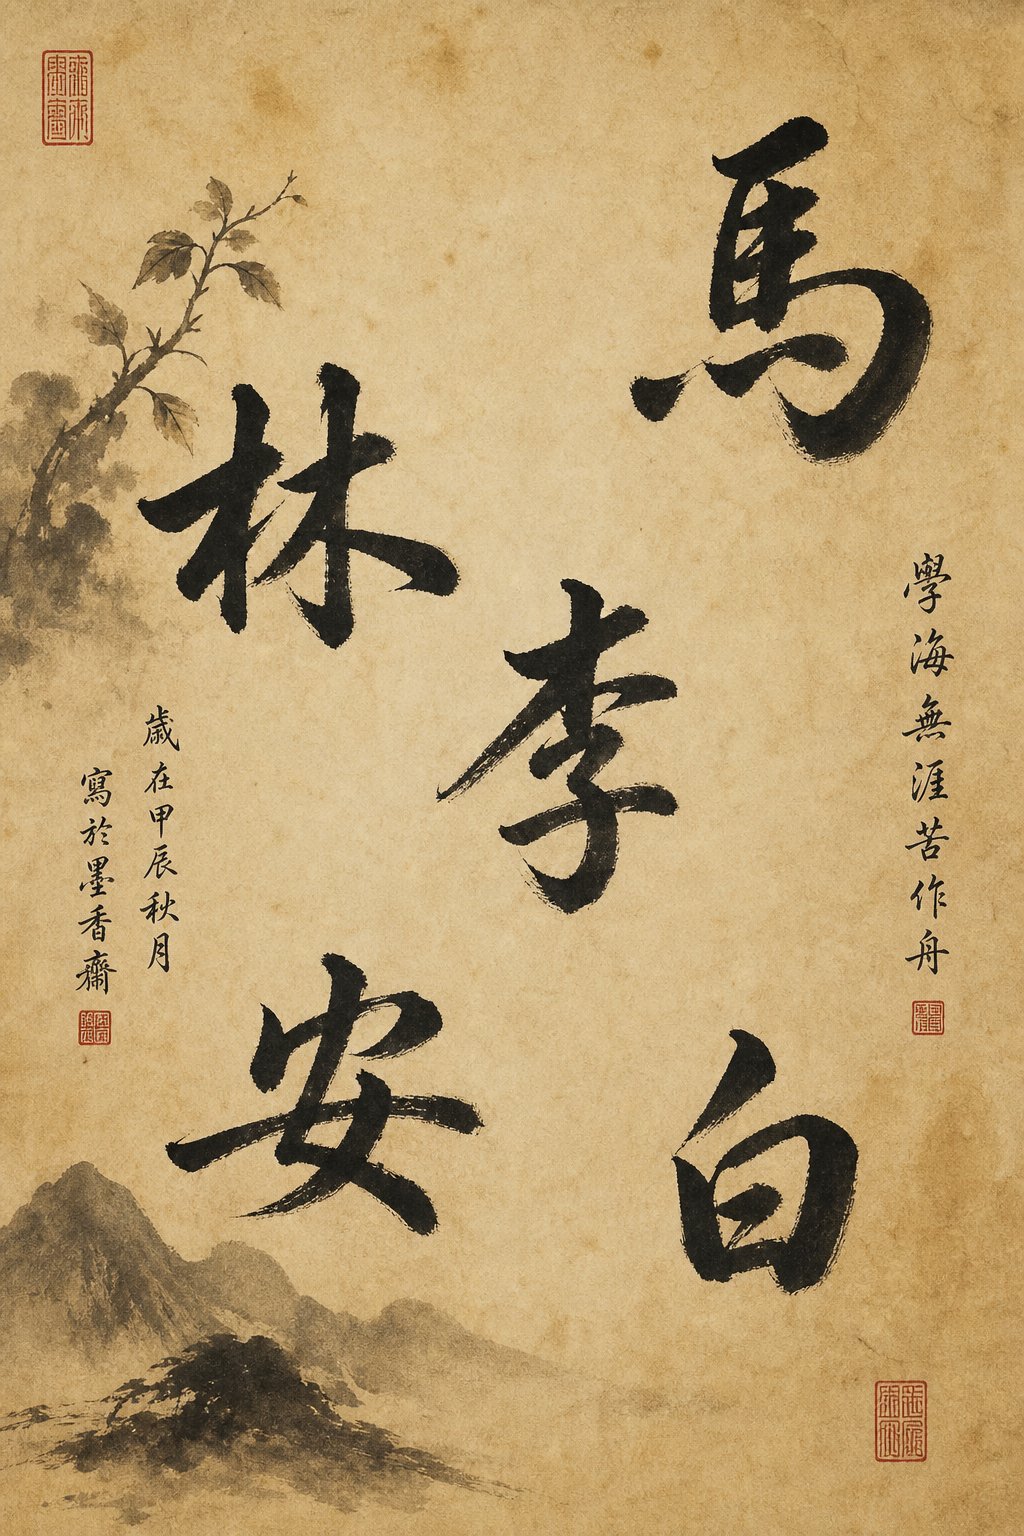 馬
林
李
安
白
學海無涯苦作舟
歲在甲辰秋月
寫於墨香齋